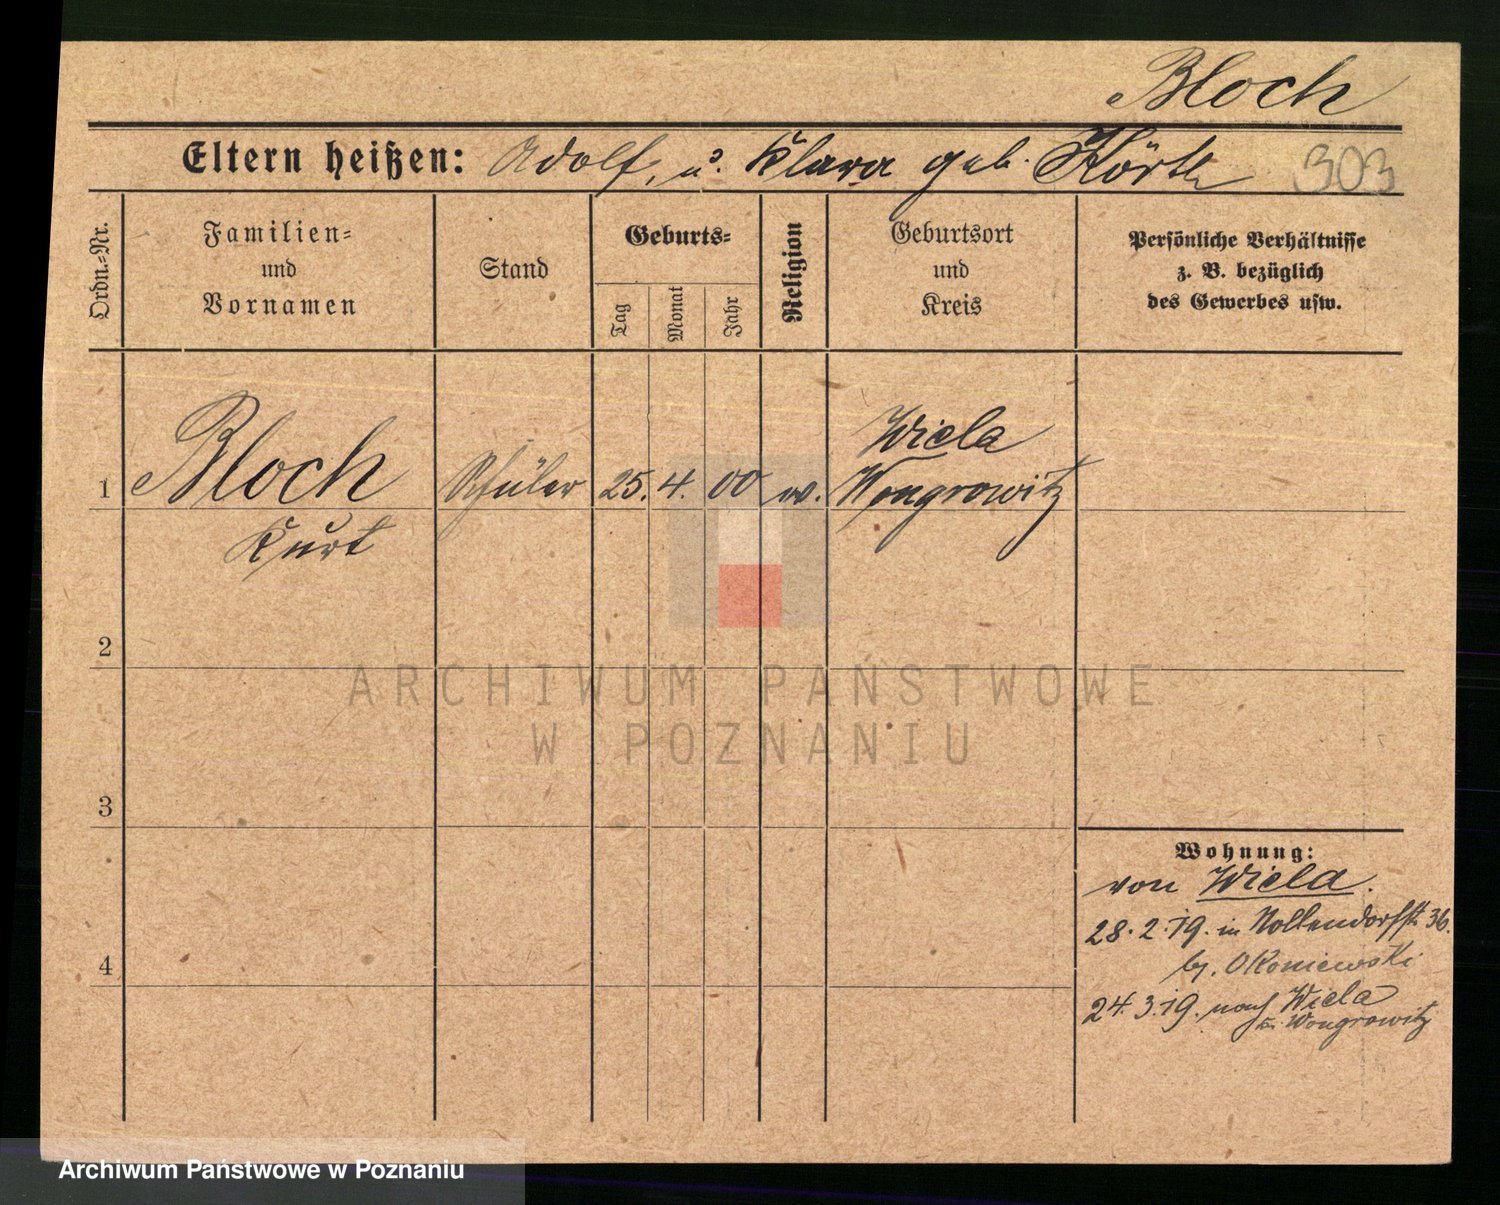 Bloch
Eltern heißen: Adolf, u. Klara geb. Körth
303
Ordn.-Nr.
Familien-
und
Vornamen
Stand
Geburts-
Tag
Monat
Jahr
Religion
Geburtsort
und
Kreis
Persönliche Verhältnisse
z. B. bezüglich
des Gewerbes usw.
1 Bloch Schüler 25. 4. 00 Wiela
Wongrowitz
Kurt
2
3
4
ARCHIWUM PAŃSTWOWE
W POZNANIU
Wohnung:
von Wiela.
28.2.19. in Nollendorfstr. 36.
bj. Okoniewski
24.3.19. nach Wiela
Kr. Wongrowitz
Archiwum Państwowe w Poznaniu